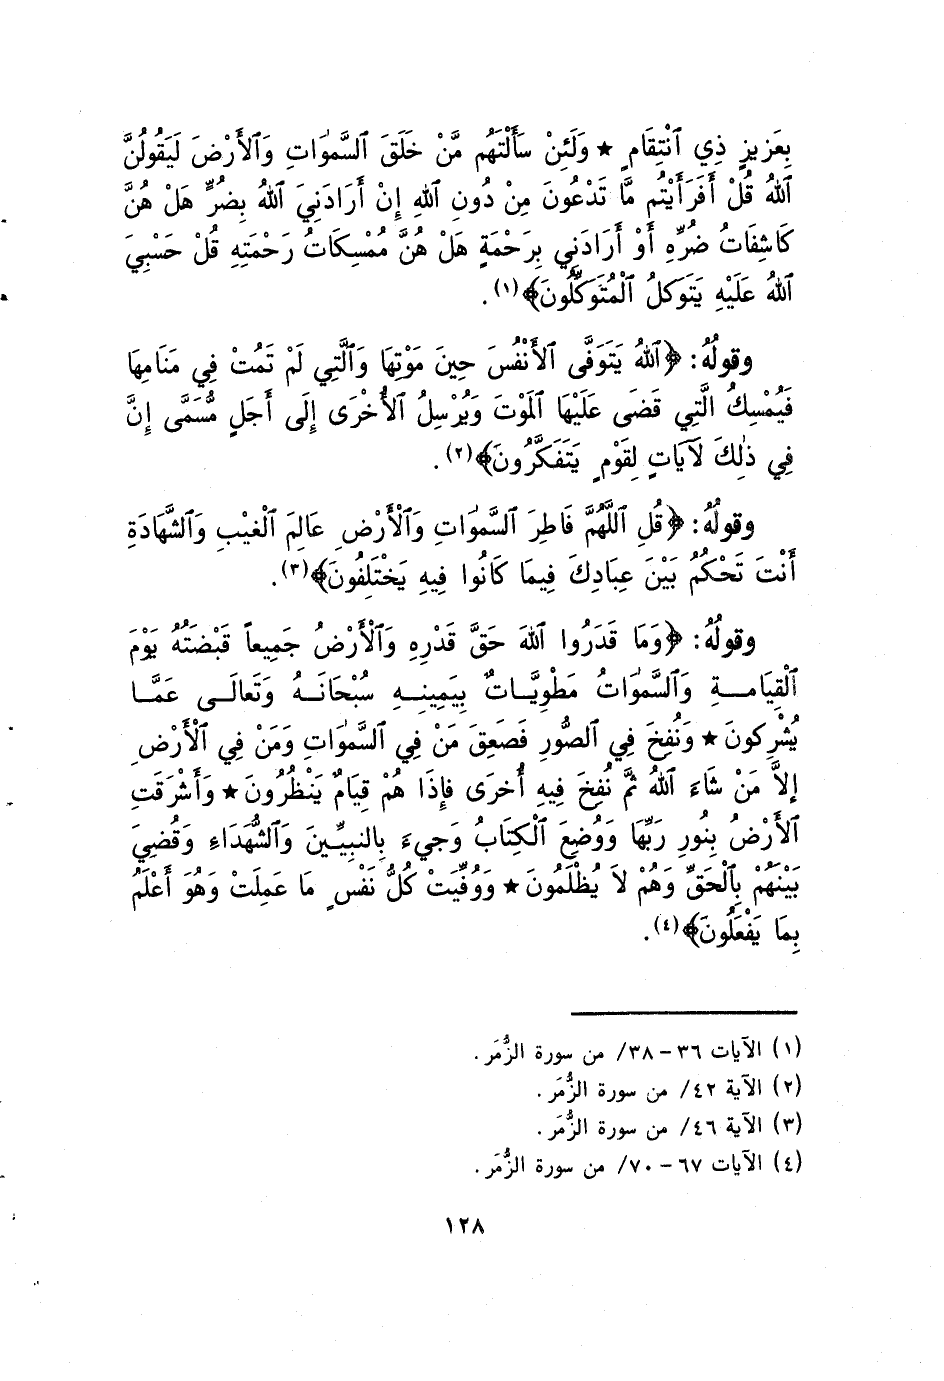 بِعَزِيزٍ ذِي ٱنْتِقَامٍ ★ وَلَئِنْ سَأَلْتَهُم مَّنْ خَلَقَ ٱلسَّمٰوَاتِ وَٱلأَرْضَ لَيَقُولُنَّ
ٱللهُ قُلْ أَفَرَأَيْتُم مَّا تَدْعُونَ مِنْ دُونِ ٱللهِ إِنْ أَرَادَنِيَ ٱللهُ بِضُرٍّ هَلْ هُنَّ
كَاشِفَاتُ ضُرِّهِ أَوْ أَرَادَنِي بِرَحْمَةٍ هَلْ هُنَّ مُمْسِكَاتُ رَحْمَتِهِ قُلْ حَسْبِيَ
ٱللهُ عَلَيْهِ يَتَوَكَلُ ٱلْمُتَوَكِّلُونَ﴾(١).
وقولُهُ: ﴿ٱللهُ يَتَوَفَّى ٱلأَنْفُسَ حِينَ مَوْتِهَا وَٱلَّتِي لَمْ تَمُتْ فِي مَنَامِهَا
فَيُمْسِكُ الَّتِي قَضَى عَلَيْهَا ٱلْمَوْتَ وَيُرْسِلُ ٱلأُخْرَى إِلَى أَجَلٍ مُّسَمَّى إِنَّ
فِي ذٰلِكَ لَآيَاتٍ لِقَوْمٍ يَتَفَكَّرُونَ﴾(٢).
وقولُهُ: ﴿قُلِ ٱللَّهُمَّ فَاطِرَ ٱلسَّمٰوَاتِ وَٱلْأَرْضِ عَالِمَ ٱلْغَيْبِ وَٱلشَّهَادَةِ
أَنْتَ تَحْكُمُ بَيْنَ عِبَادِكَ فِيمَا كَانُوا فِيهِ يَخْتَلِفُونَ﴾(٣).
وقولُهُ: ﴿وَمَا قَدَرُوا ٱللهَ حَقَّ قَدْرِهِ وَٱلْأَرْضُ جَمِيعاً قَبْضَتُهُ يَوْمَ
ٱلْقِيَامَةِ وَٱلسَّمٰوَاتُ مَطْوِيَّاتٌ بِيَمِينِهِ سُبْحَانَهُ وَتَعَالَى عَمَّا
يُشْرِكونَ ★ وَنُفِخَ فِي ٱلصُّورِ فَصَعِقَ مَنْ فِي ٱلسَّمٰوَاتِ وَمَنْ فِي ٱلْأَرْضِ
إلاَّ مَنْ شَاءَ ٱللهُ ثُمَّ نُفِخَ فِيهِ أُخرَى فَإِذَا هُمْ قِيَامٌ يَنْظُرُونَ ★ وَأَشْرَقَتِ
ٱلأَرْضُ بِنُورِ رَبِّهَا وَوُضِعَ ٱلْكِتَابُ وَجِيءَ بِالنبِيِّينَ وَٱلشُّهَدَاءِ وَقُضِيَ
بَيْنَهُمْ بِٱلْحَقِّ وَهُمْ لاَ يُظْلَمُونَ ★ وَوُفِّيَتْ كُلُّ نَفْسٍ مَا عَمِلَتْ وَهُوَ أَعْلَمُ
بِمَا يَفْعَلُونَ﴾(٤).
(١) الآيات ٣٦ – ٣٨/ من سورة الزُّمَر.
(٢) الآية ٤٢/ من سورة الزُّمَر.
(٣) الآية ٤٦/ من سورة الزُّمَر.
(٤) الآيات ٦٧ – ٧٠/ من سورة الزُّمَر.
١٢٨